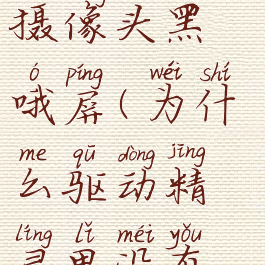 摄像头黑
ó píng wéi shí
哦屏(为什
me qū dòng jīng
么驱动精
líng lǐ méi yǒu
灵里没有